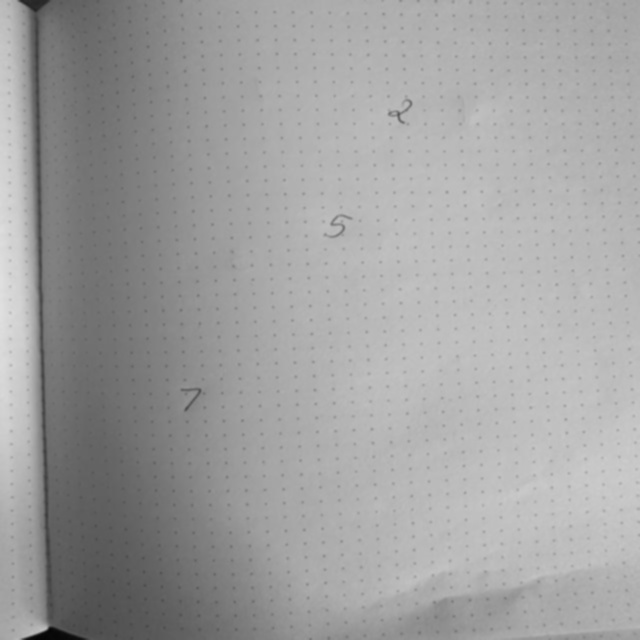 2
5
7